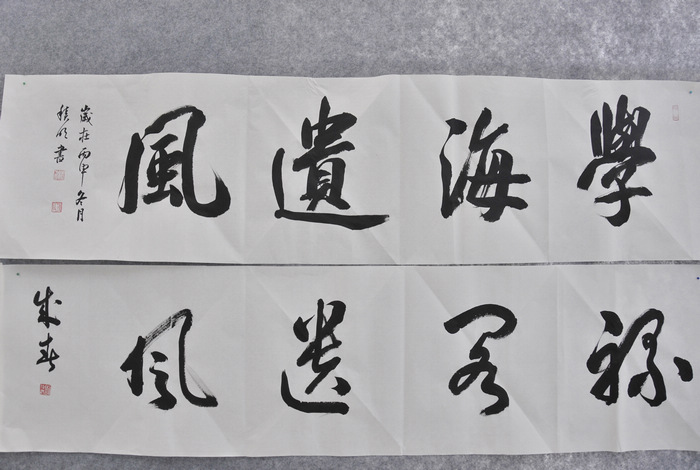 學海遺風
歲在丙申冬月
書
祿閣遺風